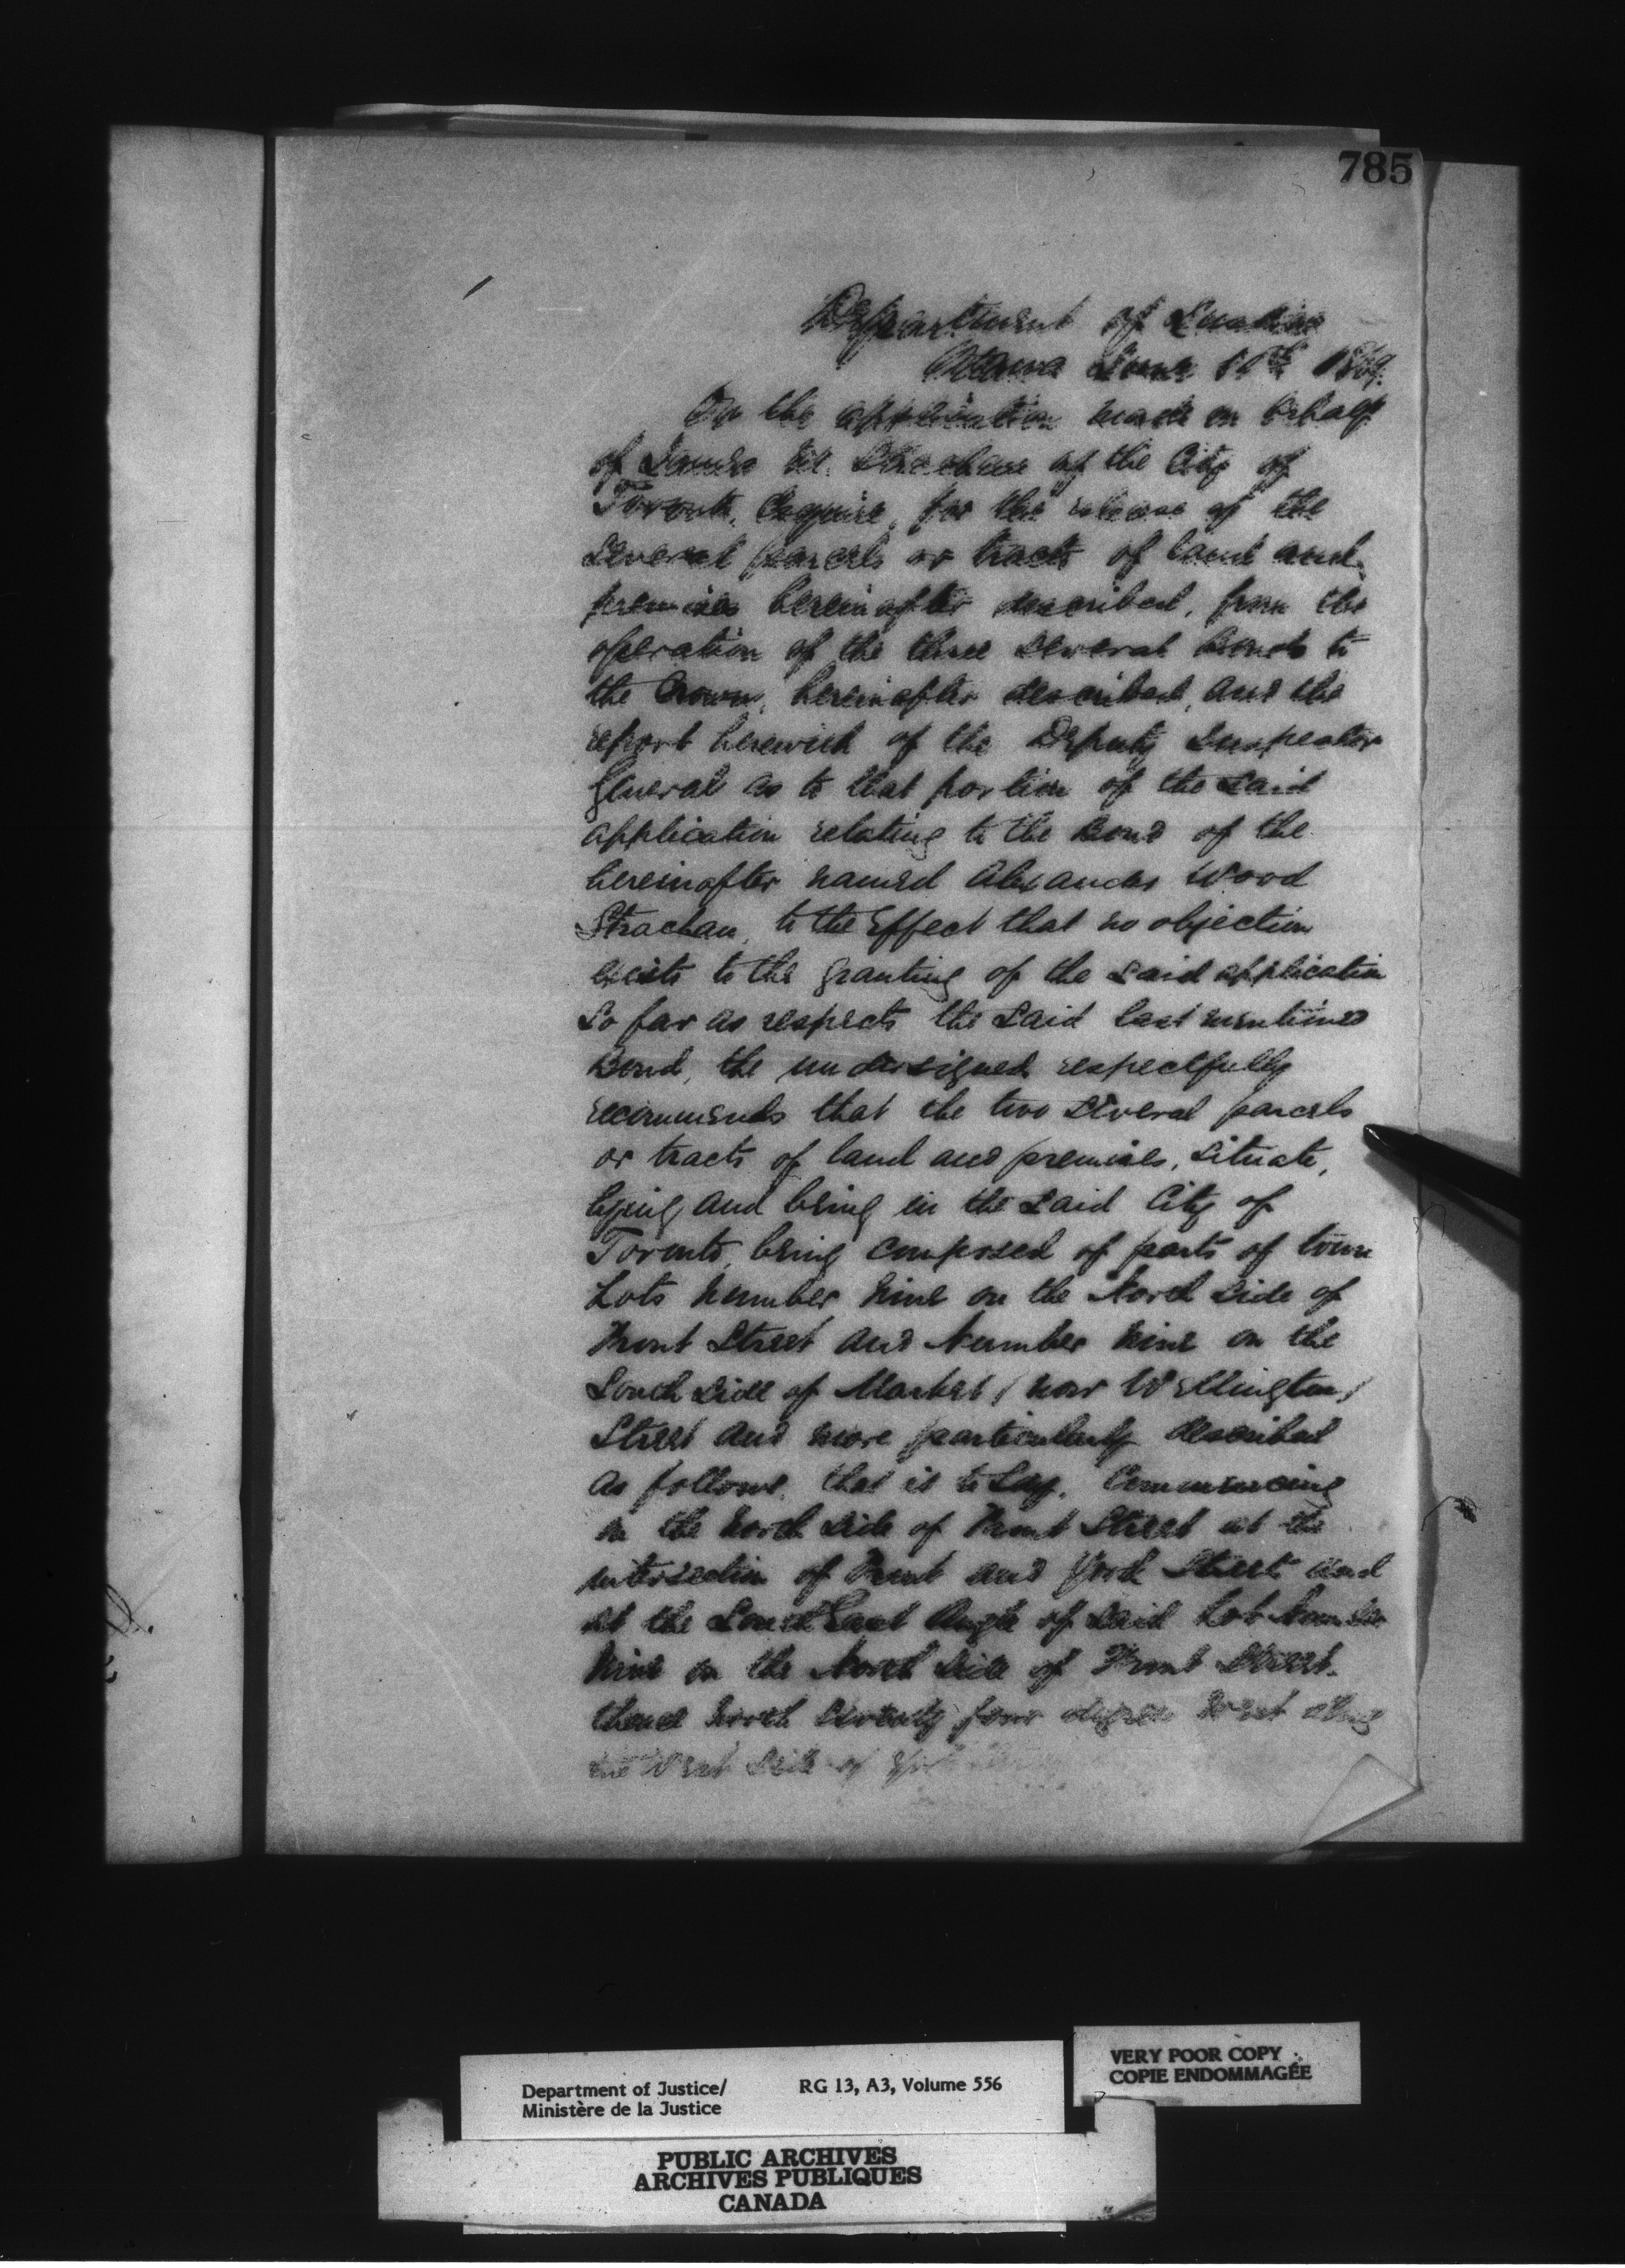 785
Department of Justice
Ottawa June 11th 1869.
On the application made on behalf
of James M. Strachan of the City of
Toronto, Esquire, for the release of the
several parcels or tracts of land and
premises hereinafter described, from the
operation of the three several Bonds to
the Crown, hereinafter described, and the
report herewith of the Deputy Inspector
General as to that portion of the said
application relating to the Bond of the
hereinafter named Alexander Wood
Strachan, to the Effect that no objection
exists to the granting of the said application
So far as respects the said last mentioned
Bond, the undersigned respectfully
recommends that the two several parcels
or tracts of land and premises, situate,
lying and being in the said City of
Toronto, being composed of parts of town
Lots Number Nine on the North Side of
Front Street and Number Nine on the
South Side of Market (now Wellington)
Street and more particularly described
as follows, that is to say, Commencing
on the North Side of Front Street at the
intersection of Front and York Streets and
at the South East Angle of said Lot Number
Nine on the North Side of Front Street.
thence North Seventy four degrees West along
the West Side of York
Department of Justice/
Ministère de la Justice
RG 13, A3, Volume 556
VERY POOR COPY
COPIE ENDOMMAGÉE
PUBLIC ARCHIVES
ARCHIVES PUBLIQUES
CANADA